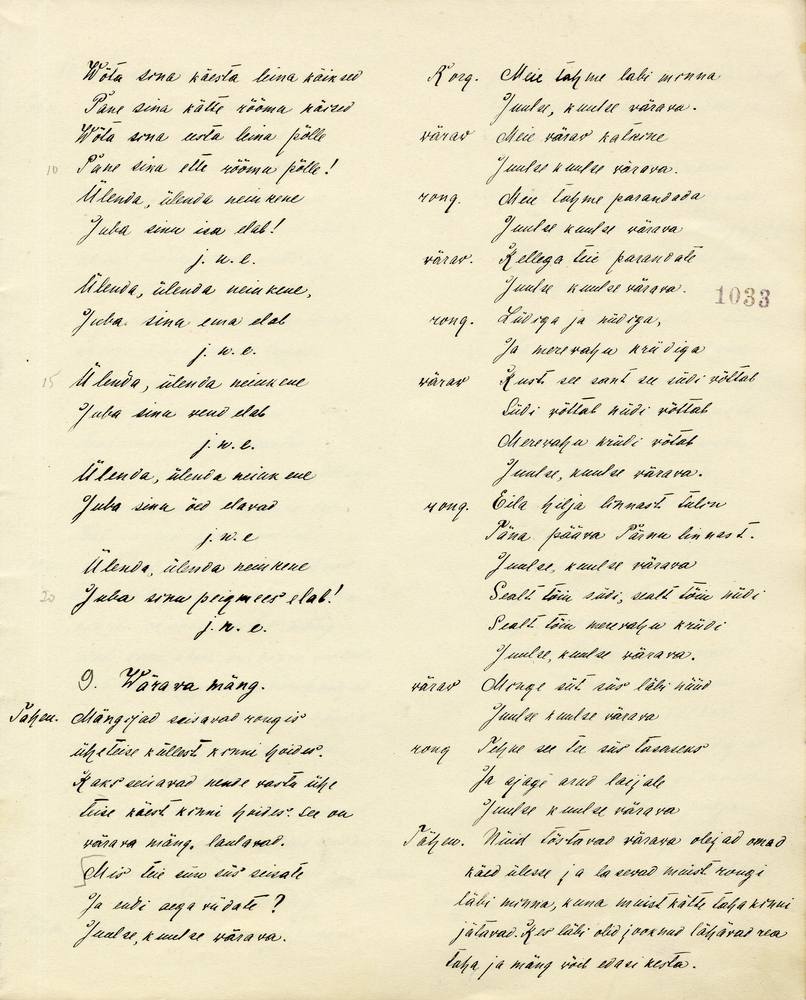 Wõta sina käesta leina käiksed
Pane sina kätte rõõmu käised
Wõta sina eesta leina põlle
10 Pane sina ette rõõmu põlle!
Ülenda, ülenda neiukene
Juba sinu isa elab!
j. n. e.
Ülenda, ülenda neiukene,
Juba sinu ema elab
j. n. e.
15 Ülenda, ülenda neiukene
Juba sinu vend elab
j. n. e.
Ülenda, ülenda neiukene
Juba sinu õed elavad
j. n. e
Ülenda, ülenda neiukene
20 Juba sinu peigmees elab!
j. n. e.
9. Wärava mäng.
Tähen. Mängijad seisavad rongis
üheteise küllest kinni hoides.
Kaks seisavad nende vastu ühe
teise käest kinni hoides. See on
värava mäng, laulavad.
Mis teie siin siis seisate
Ja endi aega viidate?
Juulse, kuulse värava.
Rong. Meie tahme läbi minna
Juulse, kuulse värava.
värav Meie värav katkine
Juulse kuulse värava.
rong. Meie tahme parandada
Juulse kuulse värava
värav. Kellega teie parandate
Juulse kuulse värava.
1033
rong. Siidiga ja niidiga,
Ja merevahu kriidiga
värav Kust see sant see siidi võttab
Siidi võttab niidi võttab
Merevahu kriidi võtab
Juulse, kuulse värava.
rong. Eila hilja linnast tulin
Täna päävä Pärnu linnast.
Juulse, kuulse värava
Sealt tõin siidi, sealt tõin niidi
Sealt tõin merevahu kriidi
Juulse, kuulse värava.
värav Minge siit siis läbi nüüd
Juulse kuulse värava
rong Tehke see tee siis tasaseks
Ja ajage arud laijale
Juulse kuulse värava
Tähen. Nüüd tõstavad värava olejad omad
käed ülesse ja lasevad muist rongi
läbi minna, kuna muist kätte taha kinni
jätavad. Kes läbi olid jooknud lähävad rea
taha ja mäng võib edasi kesta.